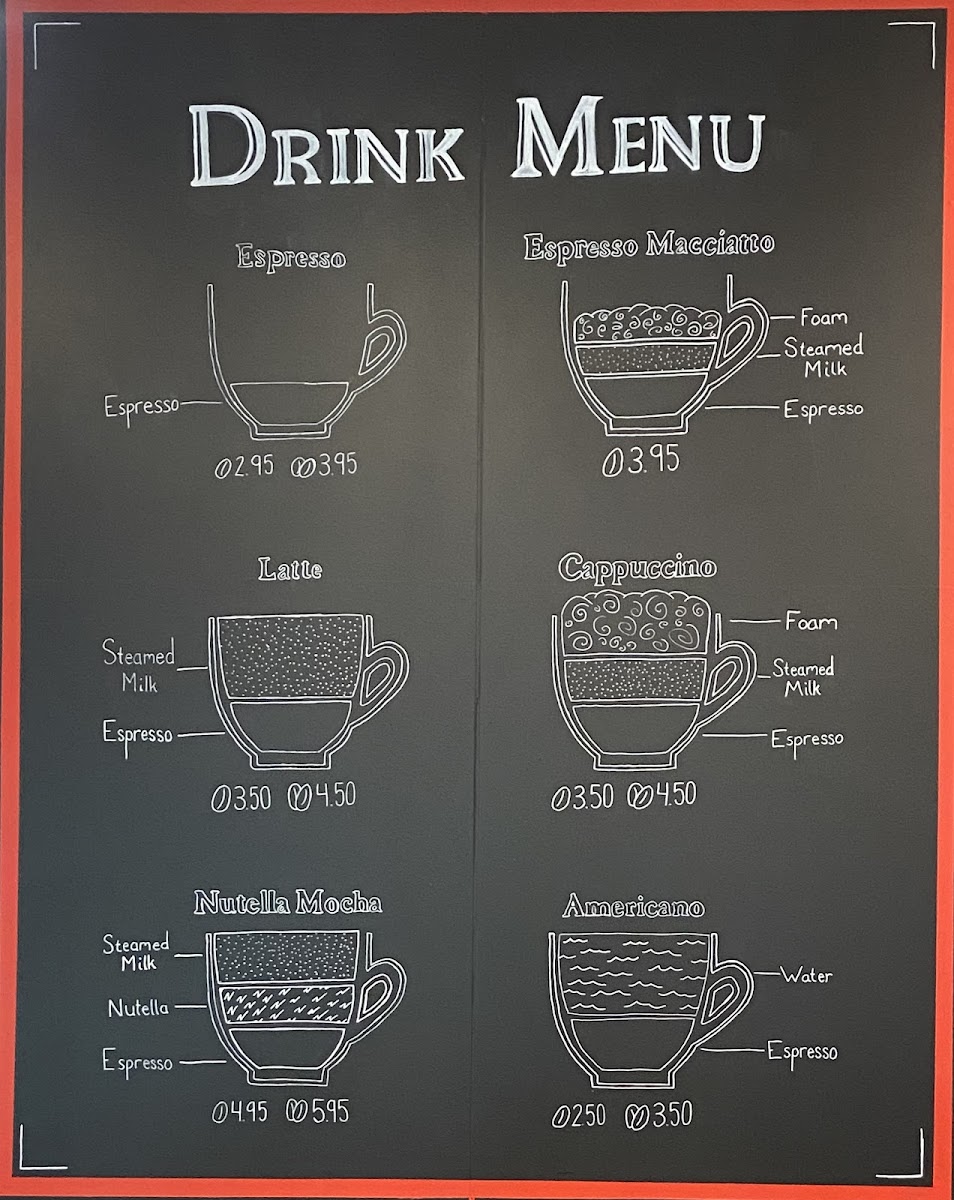 DRINK MENU
Espresso
Espresso
2.95 3.95
Espresso Macciatto
Foam
Steamed
Milk
Espresso
3.95
Latte
Steamed
Milk
Espresso
3.50 4.50
Cappuccino
Foam
Steamed
Milk
Espresso
3.50 4.50
Nutella Mocha
Steamed
Milk
Nutella
Espresso
4.95 5.95
Americano
Water
Espresso
2.50 3.50